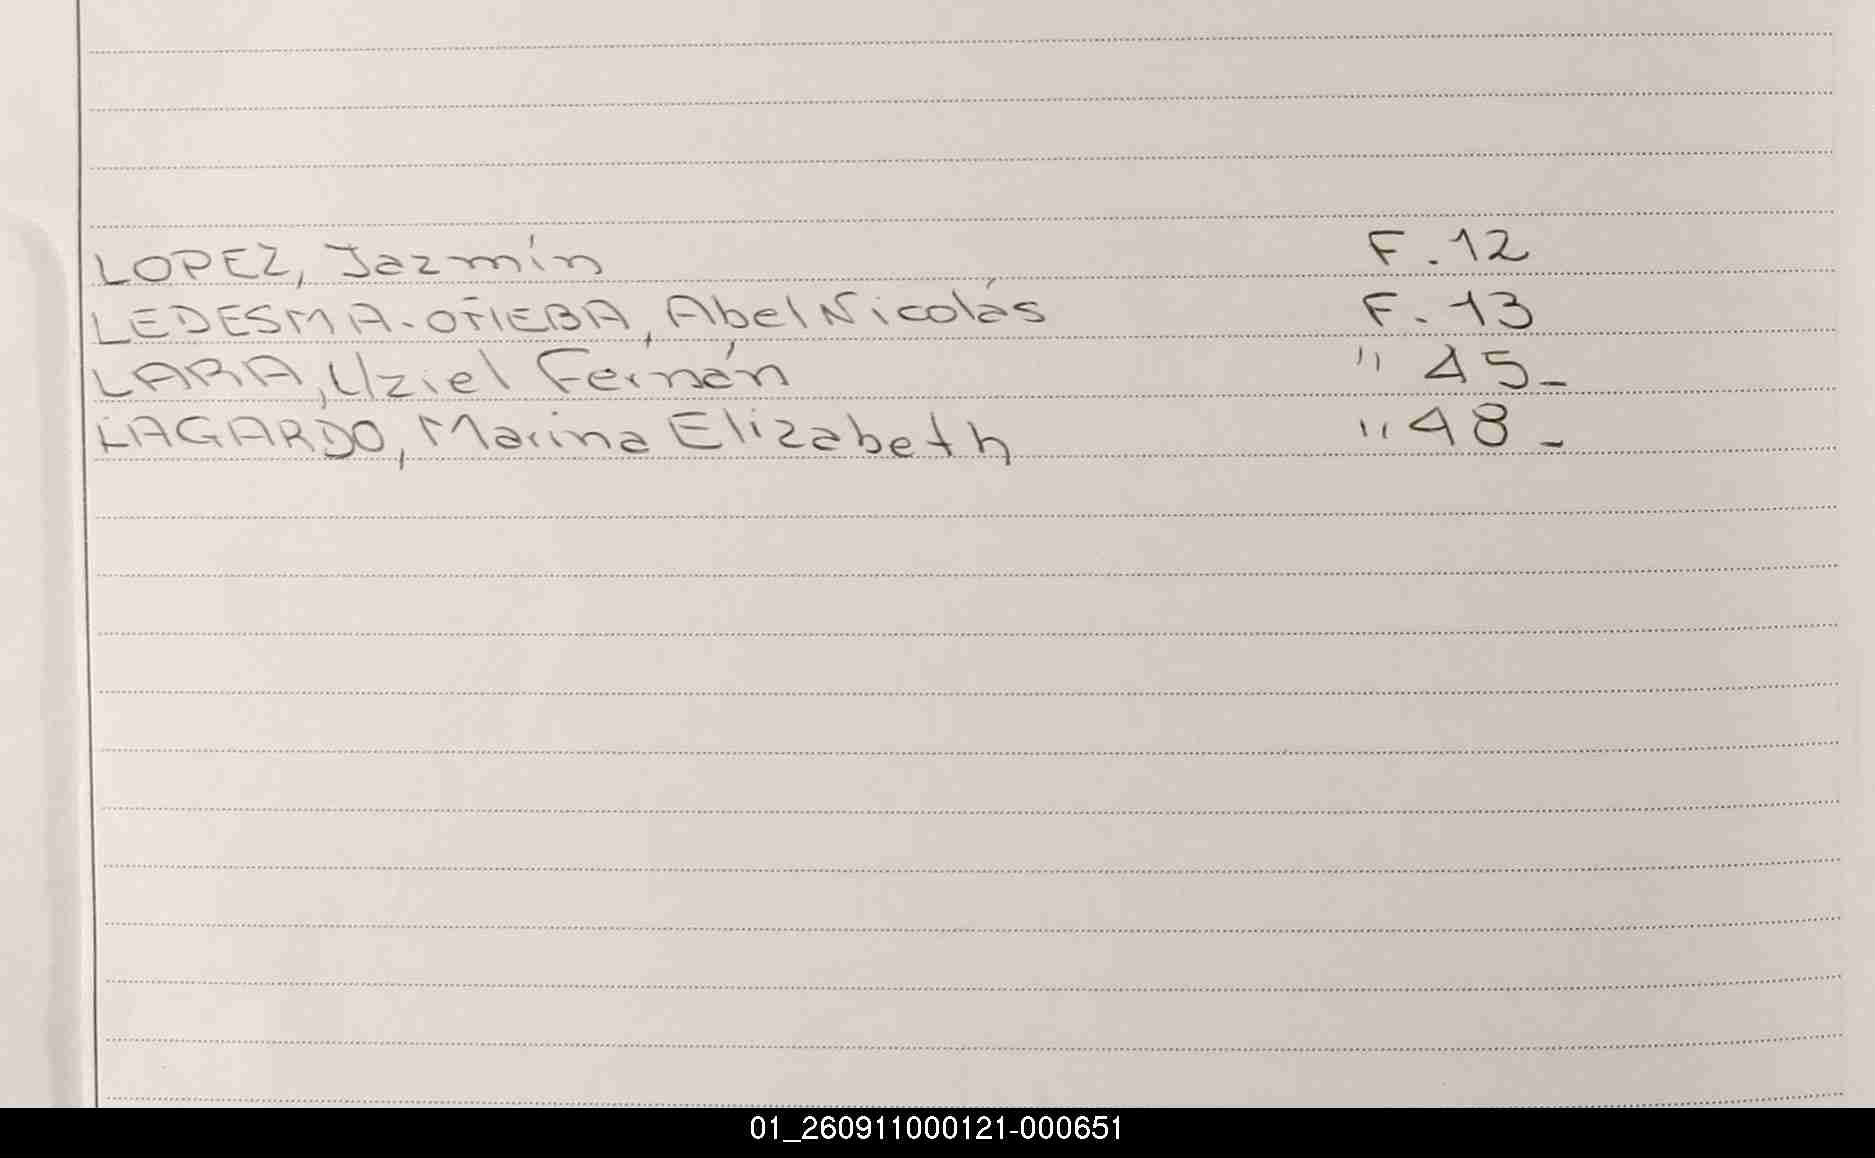 LOPEZ, Jazmín F. 12
LEDESMA-OÑIEBA, Abel Nicolás F. 13
LARA, Uziel Fernán " 45-
LAGARDO, Marina Elizabeth " 48-
01_260911000121-000651